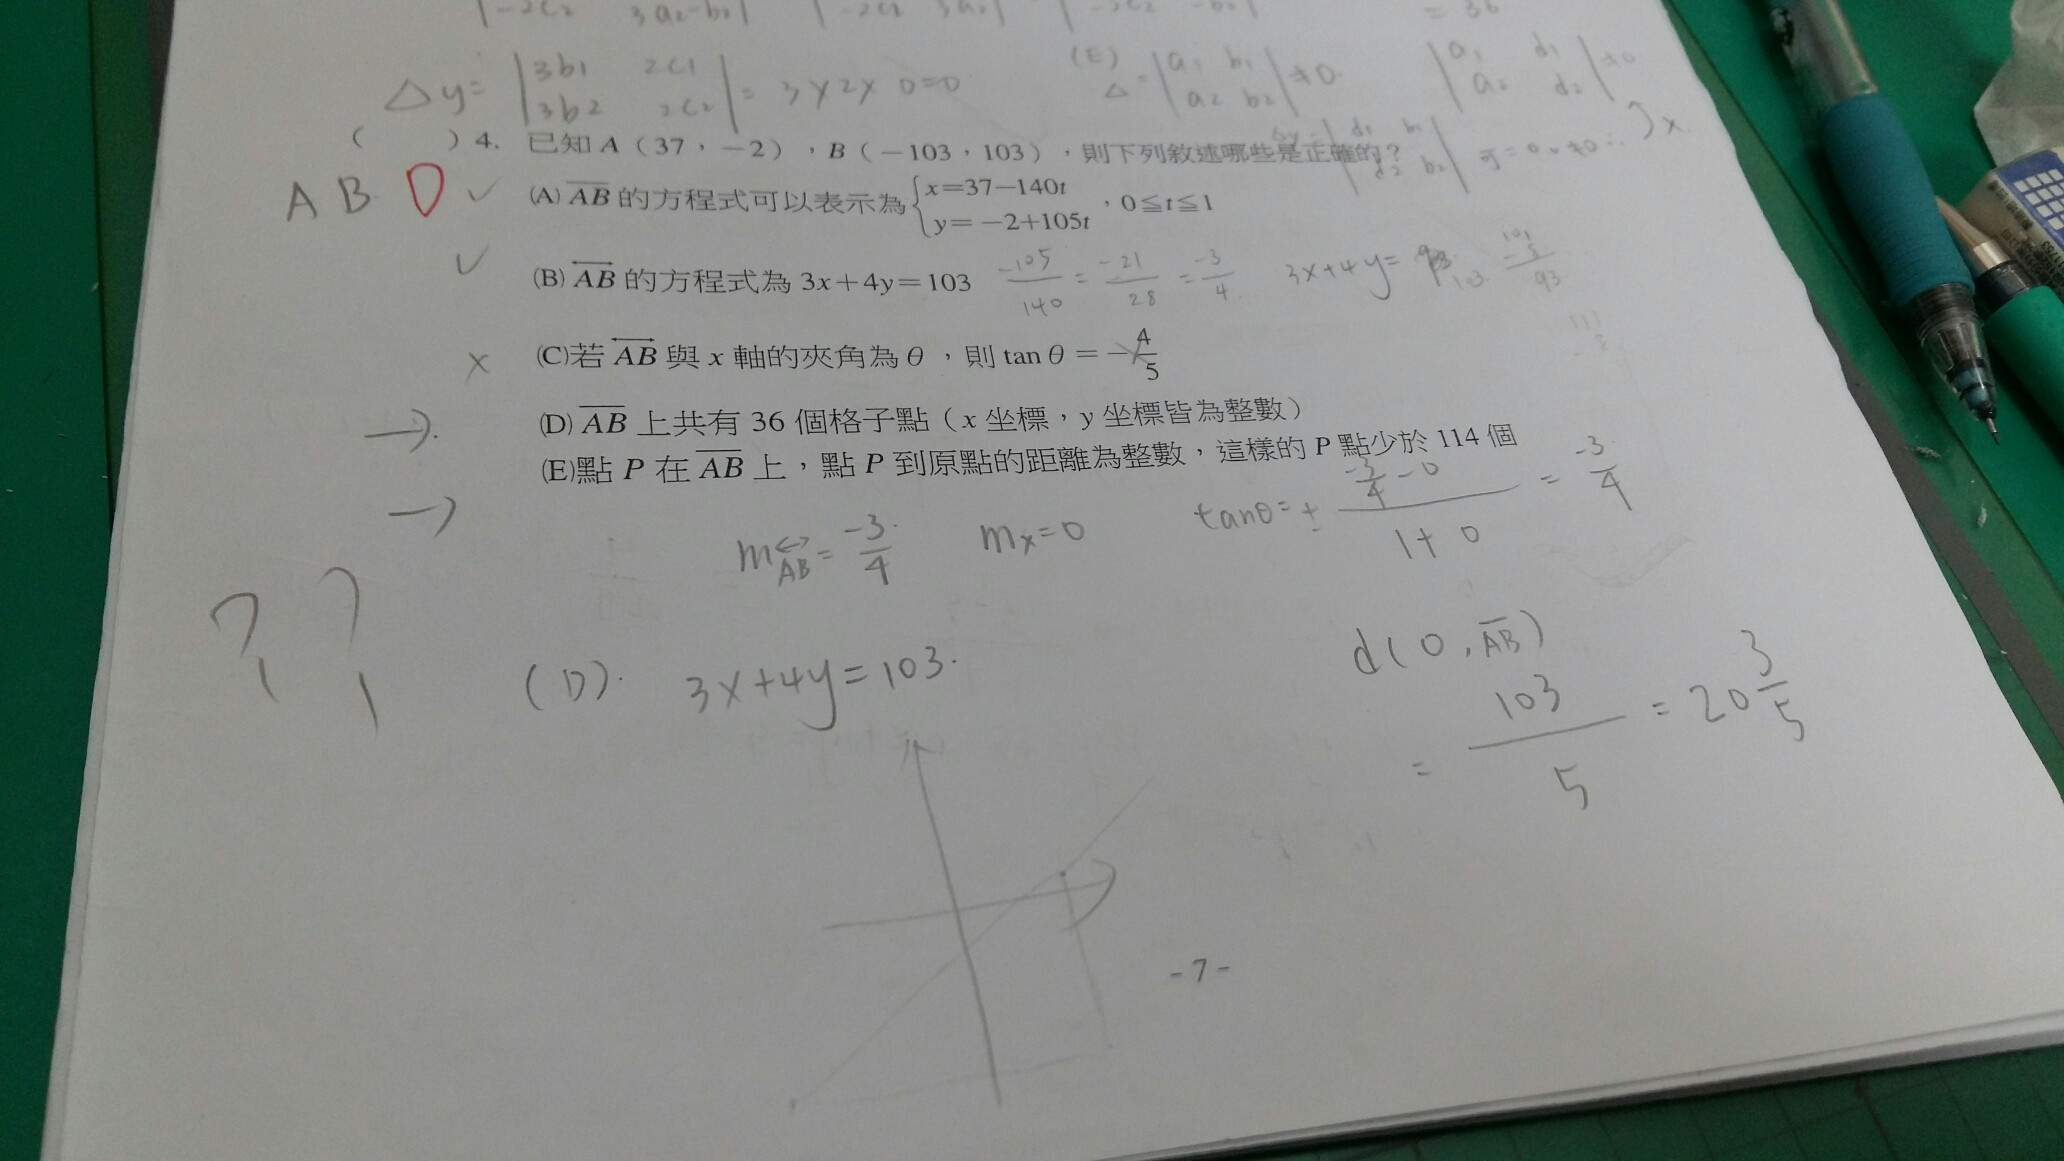 -2c2 3a2-b2 -2c2 3a2 -2c2 -b2 = 36
△y= |3b1 2c1| = 3×2× 0=0 (E) |a1 b1| ≠0. |a1 d1| ≠0
|3b2 2c2| △= |a2 b2| |a2 d2|
( )4. 已知 A（37，－2），B（－103，103），則下列敘述哪些是正確的？
A B D ✓ (A) AB 的方程式可以表示為 { x＝37－140t ，0≦t≦1
y＝－2＋105t
✓ (B) AB 的方程式為 3x＋4y＝103 -105/140 = -21/28 = -3/4 3x+4y= 103
x (C)若 AB 與 x 軸的夾角為 θ ，則 tan θ ＝－4/5
→ (D) AB 上共有 36 個格子點（x 坐標，y 坐標皆為整數）
→ (E)點 P 在 AB 上，點 P 到原點的距離為整數，這樣的 P 點少於 114 個
mAB = -3/4 mx=0 tanθ= ± (-3/4 - 0)/(1+0) = -3/4
? ?
(D). 3x+4y=103.
d(0, AB)
= 103/5 = 20 3/5
-7-